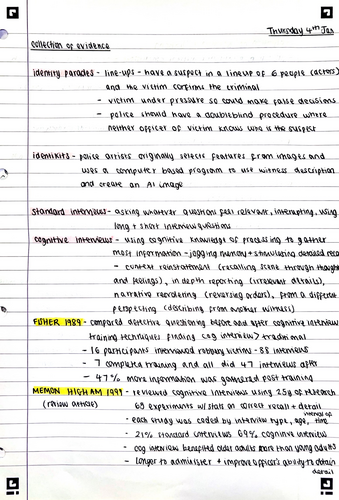 Thursday 4th Jan
collection of evidence
identity parades - line-ups - have a suspect in a lineup of 6 people (actors)
and the victim confirms the criminal
- victim under pressure so could make false decisions
- police should have a doubleblind procedure where
neither officer of victim knows who is the suspect
identikits - police artists originally selects features from images and
uses a computer based program to use witness description
and create an AI image
standard interviews - asking whatever questions feel relevant, interrupting, using
long + short interview questions
cognitive interviews - using cognitive knowledge of processing to gather
most information - jogging memory + stimulating detailed
- context reinstatement (recalling scene through thoughts
and feelings), in depth reporting (irrelevant details),
narrative reordering (reversing order), from a different
perspective (describing from another witness)
FISHER 1989 - compared detective questioning before and after cognitive interview
training techniques finding cog interview > traditional
- 16 participants interviewed robbery victims - 88 interviews
- 7 completed training and all did 47 interviews after
- 47% more information was gathered post training
MEMON HIGHAM 1999 - reviewed cognitive interviews using 25yr of research
(review article) 65 experiments w/ stats on correct recall + detail
- each study was coded by interview type, age, interval of time
- 21% standard interviews 69% cognitive interview
- cog interview benefited older adults more than young adults
- longer to administer + improve officer's ability to obtain
detail